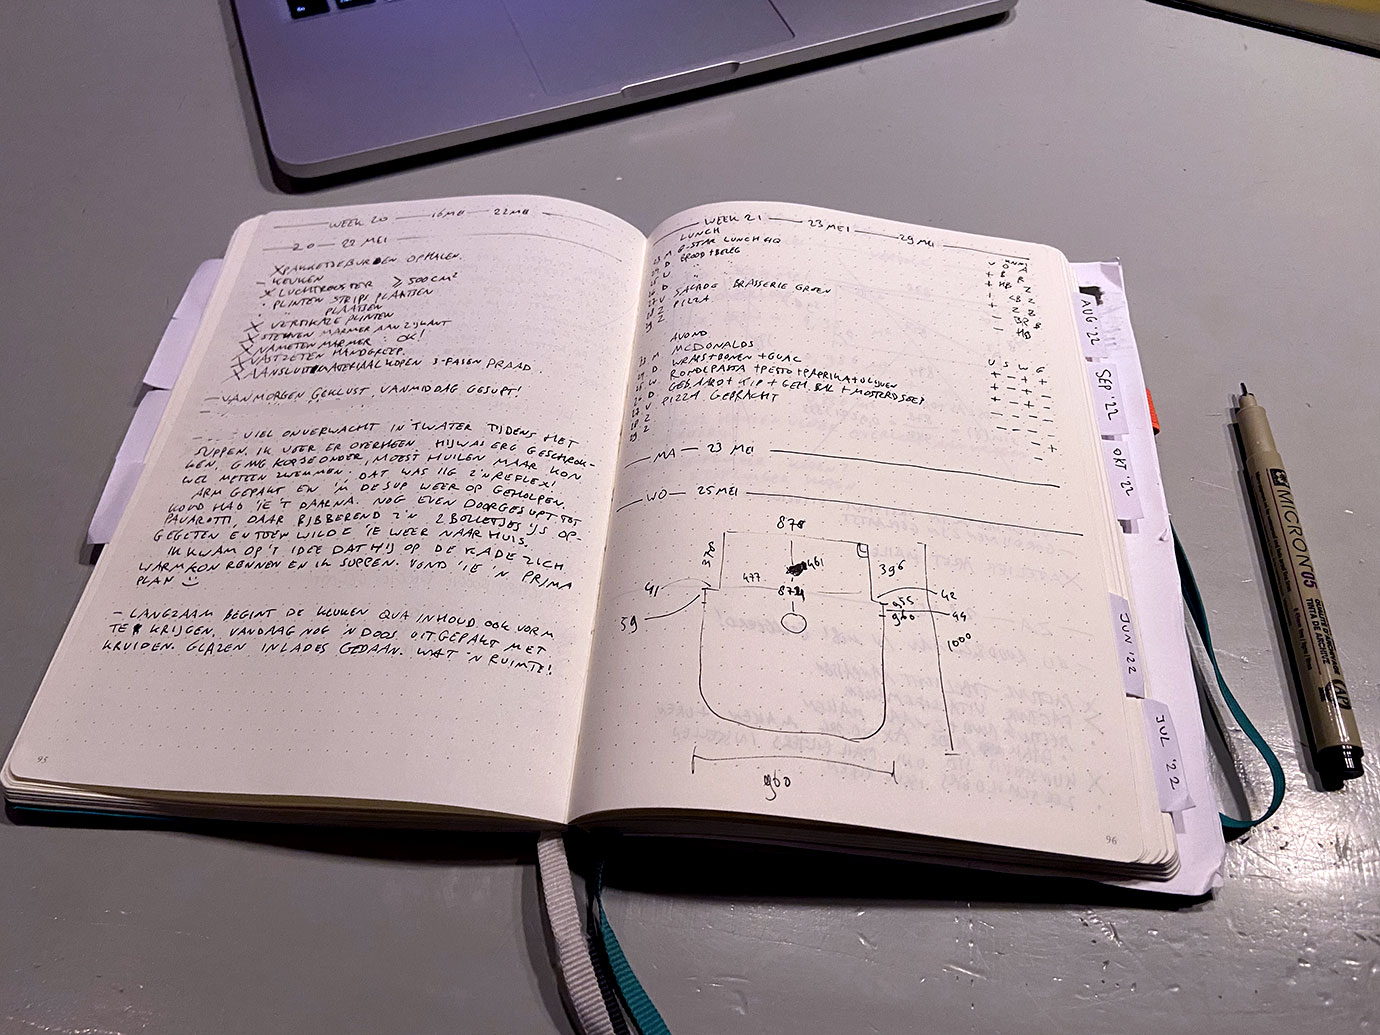 WEEK 20 — 16 MEI — 22 MEI
20 — 22 MEI
X PAKKETJE BUREN OPHALEN.
— KEUKEN
X LUCHTROOSTER ≥ 500 CM²
· PLINTEN STRIPS PLAATSEN
· " PLAATSEN
X VERTIKALE PLINTEN
X STEUNEN MARMER AAN ZIJKANT
X NAMETEN MARMER : OK!
X VASTZETEN HANDGREEP.
X AANSLUITMATERIAAL KOPEN 3-FASEN PRAAD.
— VANMORGEN GEKLUST, VANMIDDAG GESUPT!
VIEL ONVERWACHT IN 'T WATER TIJDENS HET
SUPPEN. IK VOER ER OVERHEEN. HIJ WAS ERG GESCHROK-
KEN, GING KOPJE ONDER, MOEST HUILEN MAAR KON
WEL METEEN ZWEMMEN. DAT WAS IIG Z'N REFLEX!
ARM GEPAKT EN 'M DE SUP WEER OP GEHOLPEN.
KOUD HAD 'IE 'T DAARNA. NOG EVEN DOORGESUPT TOT
PAVAROTTI, DAAR BIBBEREND Z'N 2 BOLLETJES IJS OP-
GEGETEN EN TOEN WILDE 'IE WEER NAAR HUIS.
IK KWAM OP 'T IDEE DAT HIJ OP DE KADE ZICH
WARM KON RENNEN EN IK SUPPEN. VOND 'IE 'N PRIMA
PLAN
— LANGZAAM BEGINT DE KEUKEN QUA INHOUD OOK VORM
TE KRIJGEN. VANDAAG NOG 'N DOOS UITGEPAKT MET
KRUIDEN. GLAZEN IN LADES GEDAAN. WAT 'N RUIMTE!
95
WEEK 21 — 23 MEI — 29 MEI
LUNCH
23 M G-STAR LUNCH HQ
24 D BROOD + BELEG
25 W " "
26 D
27 V SALADE BRASSERIE GROEN
28 Z PIZZA
29 Z
AVOND
23 M MCDONALDS
24 D WRAPS + BONEN + GUAC
25 W RONDE PASTA + PESTO + PAPRIKA + OLIJVEN
26 D GEB. AARD + KIP + GEM. SAL + MOSTERDSOEP
27 V PIZZA GEBRACHT
28 Z
29 Z
MA — 23 MEI
WO — 25 MEI
878
398
461
396
477
874
41
42
955
44
59
960
1000
960
96
AUG '22
SEP '22
OKT '22
JUN '22
JUL '22
MICRON 05